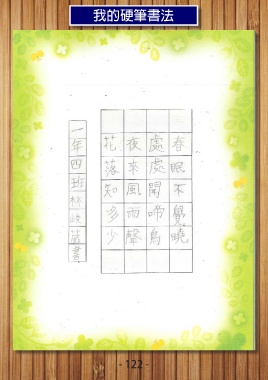 我的硬筆書法
春眠不覺曉
處處聞啼鳥
夜來風雨聲
花落知多少
一年四班林
書
- 122 -